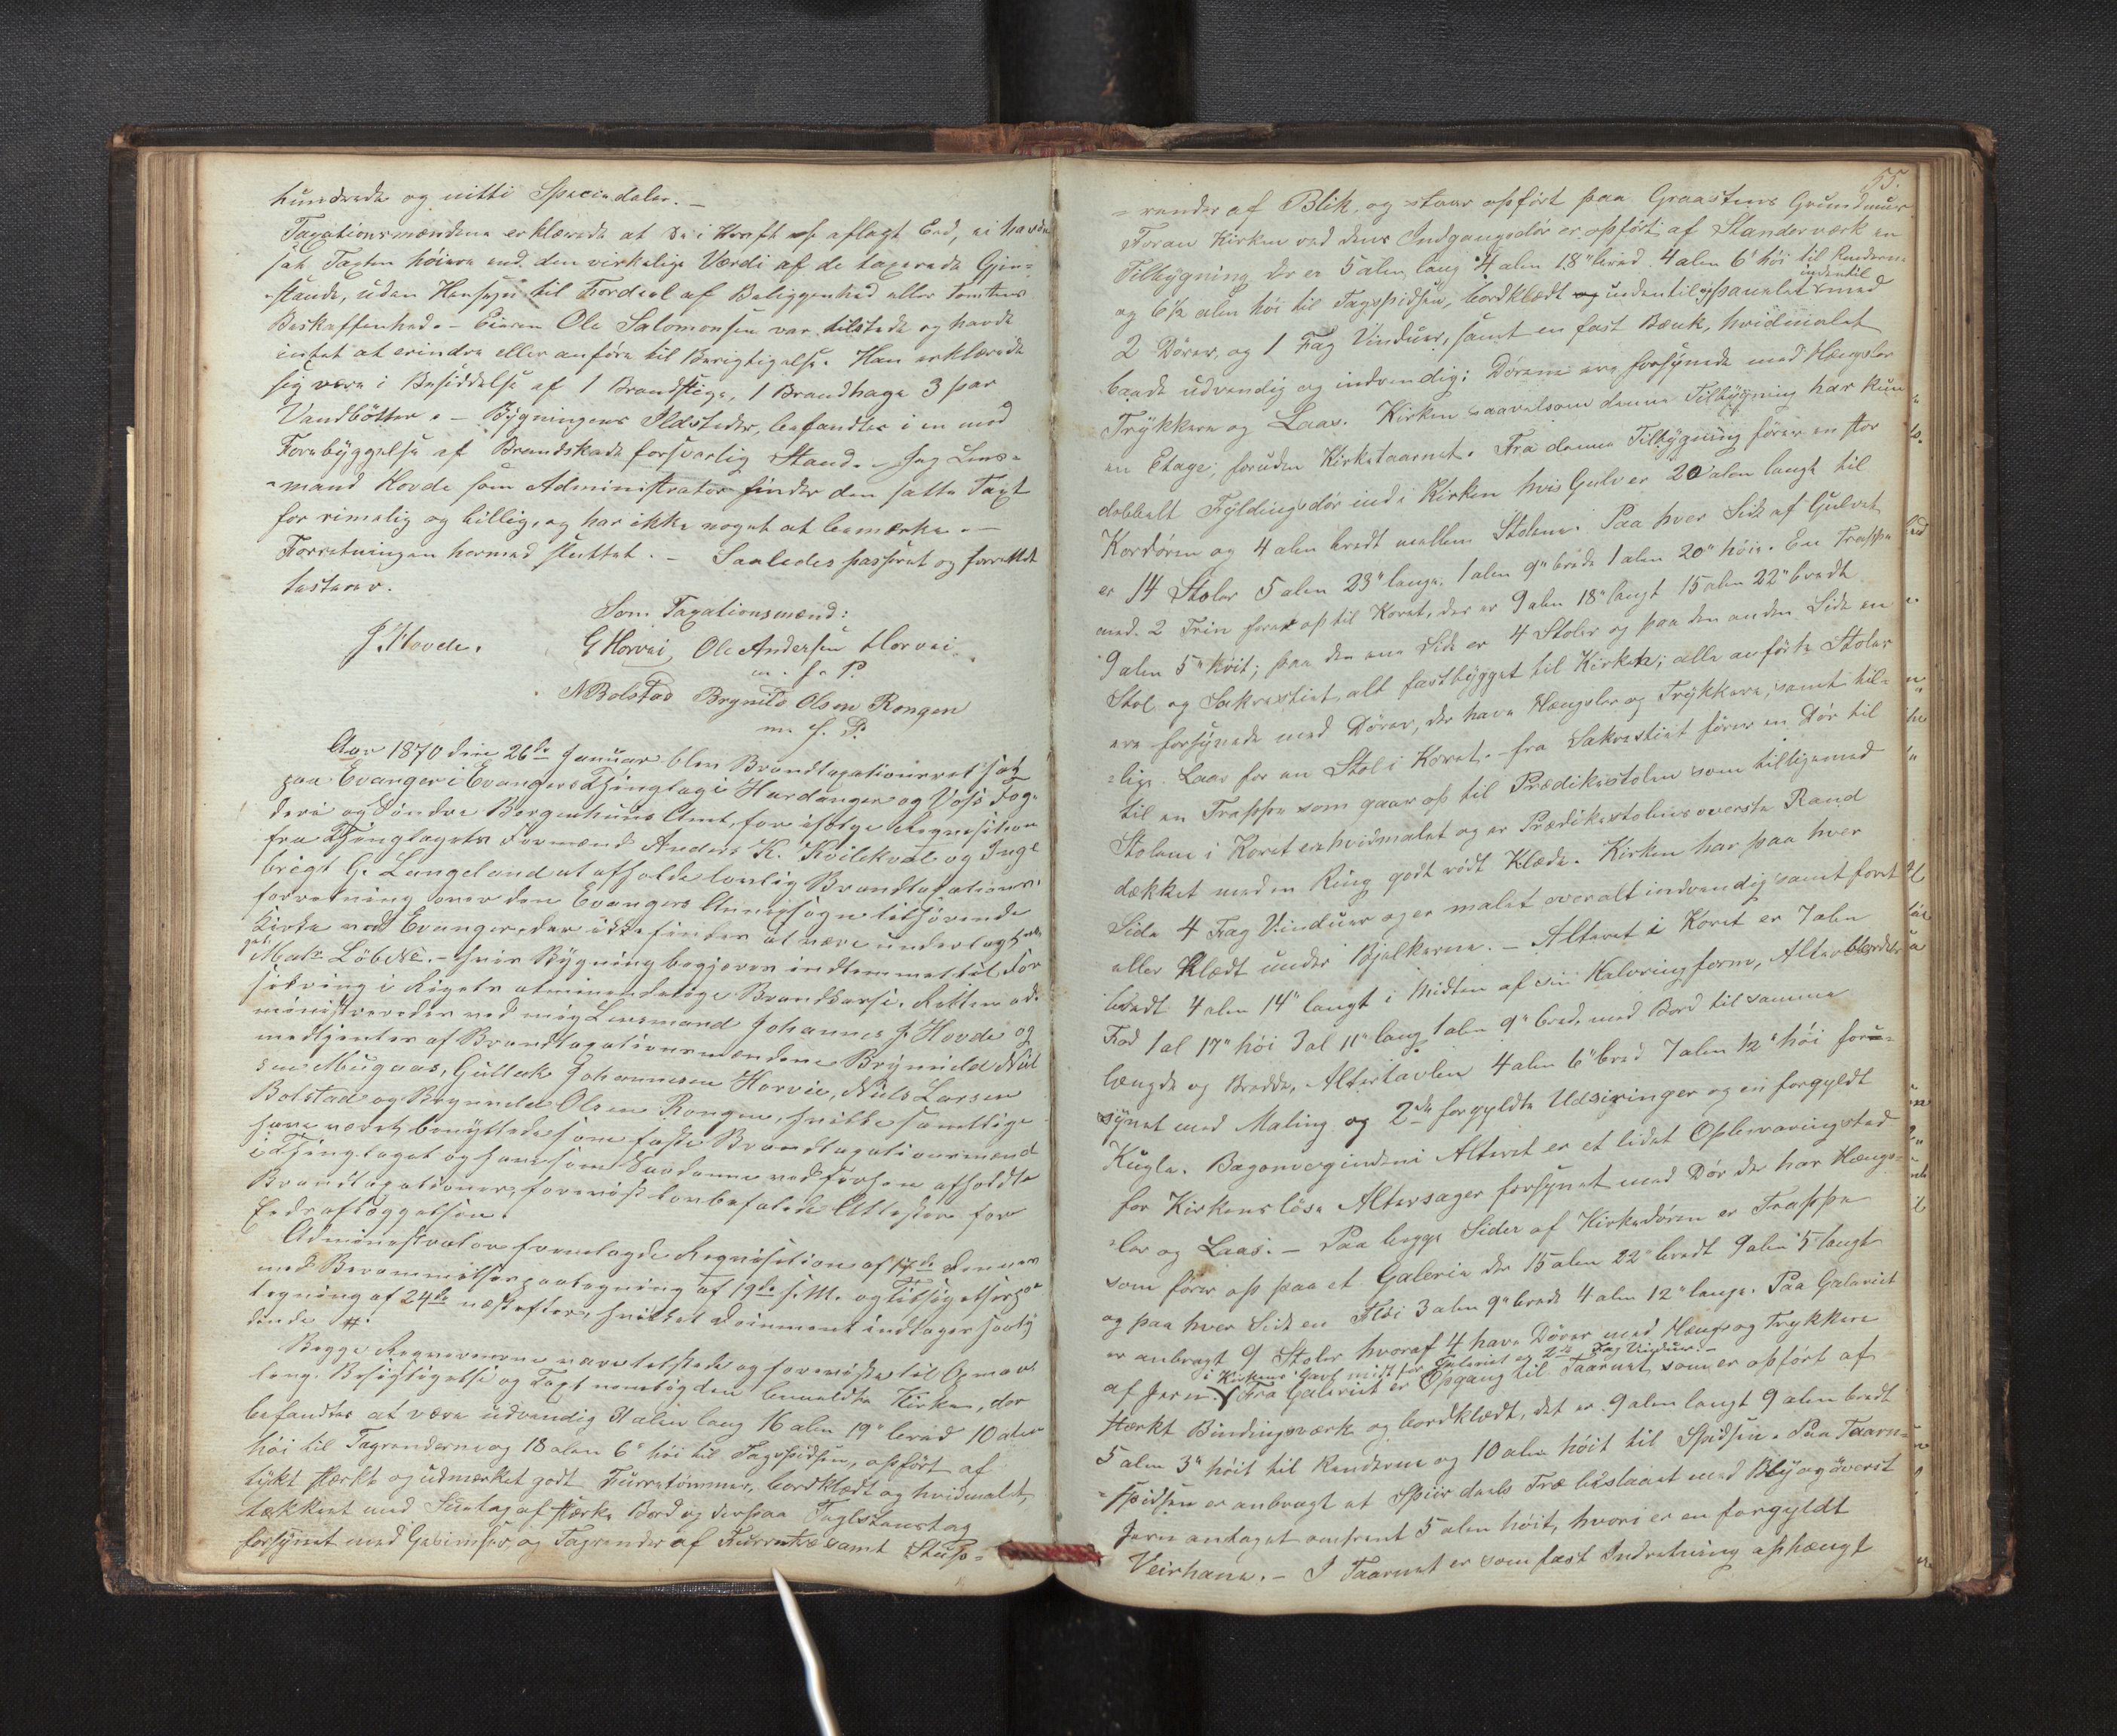 hundrede og nitti Speciedaler. –
Taxationsmændene erklærede at de i Kraft af aflagt Eed, ei havde
sat Taxten høiere end den virkelige Værdi af de taxerede Gjen-
-stande, uden Hensyn til Fordeel af Beliggenhed eller Tomtens
Beskaffenhed. – Eieren Ole Salomonsen var tilstede og havde
intet at erindre eller anføre til Berigtigelse. Han erklærede
sig være i Besiddelse af 1 Brandstige, 1 Brandhage 3 par
Vandbøtter. – Bygningens Ildsteder, befandtes i en mod
Forebyggelse af Brandskade forsvarlig Stand. – Jeg Lens-
-mand Hovde som Administrator finder den satte Taxt
for rimelig og billig, og har ikke noget at bemærke. –
Forretningen hermed sluttet. – Saaledes passeret og forrettet
testerer.
Som Taxationsmænd:
J. Hovde. G Horvei, Ole Andersen Horvei
m. f. P.
N Bolstad Brynild Olsen Rongen
m. f. P.
Aar 1870 den 26de Januar blev Brandtaxationsret sat
paa Evanger i Evangers Thinglag i Hardanger og Voss Fog-
deri og Søndre Bergenhuus Amt, for ifølge Requisition
fra Thinglagets Formænd Anders K. Kvilekval og Inge
brigt G. Langeland at afholde lovlig Brandtaxations-
forretning over den Evangers Annexsogn tilhørende
Kirke ved Evanger, der ikke findes at være underlagt
Matr Løb No. – hvis Bygning begjæres indlemmet til For
sikring i Rigets almindelige Brandkasse. Retten ad-
ministreredes ved mig Lensmand Johannes J. Hovde og
medtjentes af Brandtaxationsmændene Brynild Nil
sen Mugaas, Gullek Johannesen Horvie, Niels Larsen
Bolstad og Brynild Olsen Rongen, hvilke samtlige
have været benyttede som faste Brandtaxationsmænd
i Thinglaget og have som Saadanne ved førhen afholdte
Brandtaxationer, foreviist lovbefalede Attester for
Eedsaflæggelsen.
Administrator fremlagde Requisition af 17de dennes
med Berammelsespaategning af 19de s. M. og Tilsigelsespa
tegning af 24de næstefter, hvilket Document indtages saaly
dende #.
Begge Requirenterne vare tilstede og foreviste til Opmaa
ling, Besigtigelse og Taxt nemlig den bemeldte Kirke, der
befandtes at være udvendig 31 alen lang 16 alen 19" bred 10 alen
høi til Tagrenderne og 18 alen 6" høi til Tagspidsen, opført af
tykt stærkt og udmærket godt Furretømmer, bordklædt og hvidmalet,
tækket med Suutag af stærke Bord og derpaa Taglsteenstag
forsynet med Gesimser og Tagrender af Furretræ samt Stup-
55.
= render af Blik, og staar opført paa Graasteens Grundmuur
Foran Kirken ved dens Indgangsdør er opført af Standerværk en
Tilbygning der er 5 alen lang 4 alen 18" bred 4 alen 6" høi til Renderne
og 6½ alen høi til Tagspidsen, bordklædt og udentil og indentil panelet med
2 Dører, og 1 Fag Vinduer, samt en fast Bænk, hvidmalet
baade udvendig og indvendig; Dørene ere forsynede med Hængsler
Trykkere og Laas. Kirken saavelsom denne Tilbygning har kun
en Etage, foruden Kirketaarnet. Fra denne Tilbygning fører en stor
dobbelt Fyldingsdør ind i Kirken hvis Gulv er 20 alen langt til
Kordøren og 4 alen bredt mellem Stolene. Paa hver Side af Gulvet
er 14 Stoler 5 alen 23" lange. 1 alen 9" brede 1 alen 20" høie. En Trappe
med 2 Trin fører op til Koret, der er 9 alen 18" langt 15 alen 22" bredt
9 alen 5" høit; paa den ene Side er 4 Stoler og paa den anden Side en
Stol og Sakrestiet alt fastbygget til Kirken; alle anførte Stoler
ere forsynede med Dører, der have Hængsler og Trykkere, samt til-
=lige Laas for en Stol i Koret. – fra Sakrestiet fører en Dør til
til en Trappe som gaar op til Prædikestolen som tilligemed
Stolene i Koret er hvidmalet og er Prædikestolens øverste Rand
dækket med en Ring godt rødt Klæde. Kirken har paa hver
Side 4 Fag Vinduer og er malet overalt indvendig samt foret
eller klædt under Bjelkerne. – Alteret i Koret er 7 alen
bredt 4 alen 14" langt i Midten af sin Halvringform, Alterbordets
Fod 1 al 17" høi 3 al 11" lang 1 alen 9" bred, med Bord til samme
længde og Bredde, Altertavlen 4 alen 6" bred 7 alen 12" høi foru-
synet med Maling og 2de forgyldte Udsiringer og en forgyldt
Kugle. Bagom og indeni Alteret er et lidet Opbevaringsted
for Kirkens løse Altersager forsynet med Dør der har Hængs-
=ler og Laas. – Paa begge Sider af Kirkedøren er Trappe
som fører op paa et Galerie der 15 alen 22" bredt 9 alen 5" langt
og paa hver Side en Fløi 3 alen 9" brede 4 alen 12" lange. Paa Galeriet
er anbragt 9 Stoler hvoraf 4 have Dører med Hængs og Trykkere
i Kirkens Gavl midt for Galeriet er 2de Fag Vinduer. –
af Jern. Fra Galeriet er Opgang til Taarnet som er opført af
stærkt Bindingsværk og bordklædt, det er 9 alen langt 9 alen bredt
5 alen 3" høit til Renderne og 10 alen høit til Spidsen. Paa Taarn-
=spidsen er anbragt et Spiir deels Træ beslaaet med Bly og øverst
Jern antaget omtrent 5 alen høit, hvori er en forgyldt
Veirhane. – I Taarnet er som fast Indretning ophængt